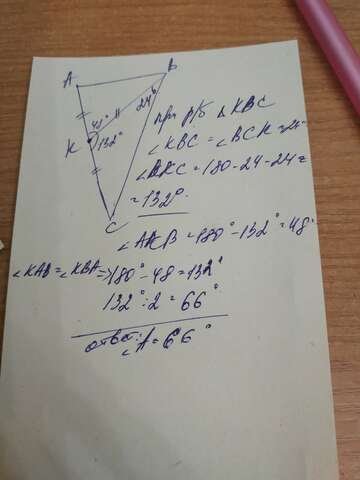 A
B
24°
48°
K
132°
C
при р/б Δ KBC
∠KBC = ∠BCK = 24°
∠BKC = 180-24-24=
= 132°
∠AKB = 180° - 132° = 48°
∠KAB = ∠KBA => 180° - 48 = 132°
132° : 2 = 66°
ответ:
∠A = 66°